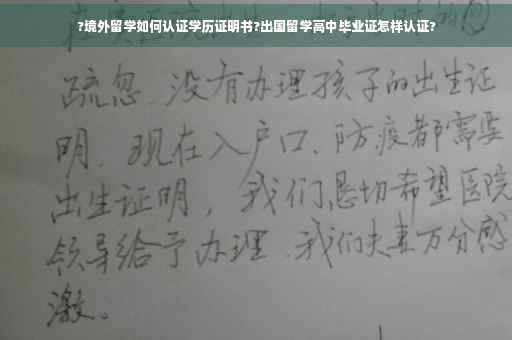 ?境外留学如何认证学历证明书?出国留学高中毕业证怎样认证?
疏忽、没有办理孩子的出生证
明、现在入户口、防疫都需要
出生证明，我们恳切希望医院
领导给予办理、我们夫妻万分感
激。